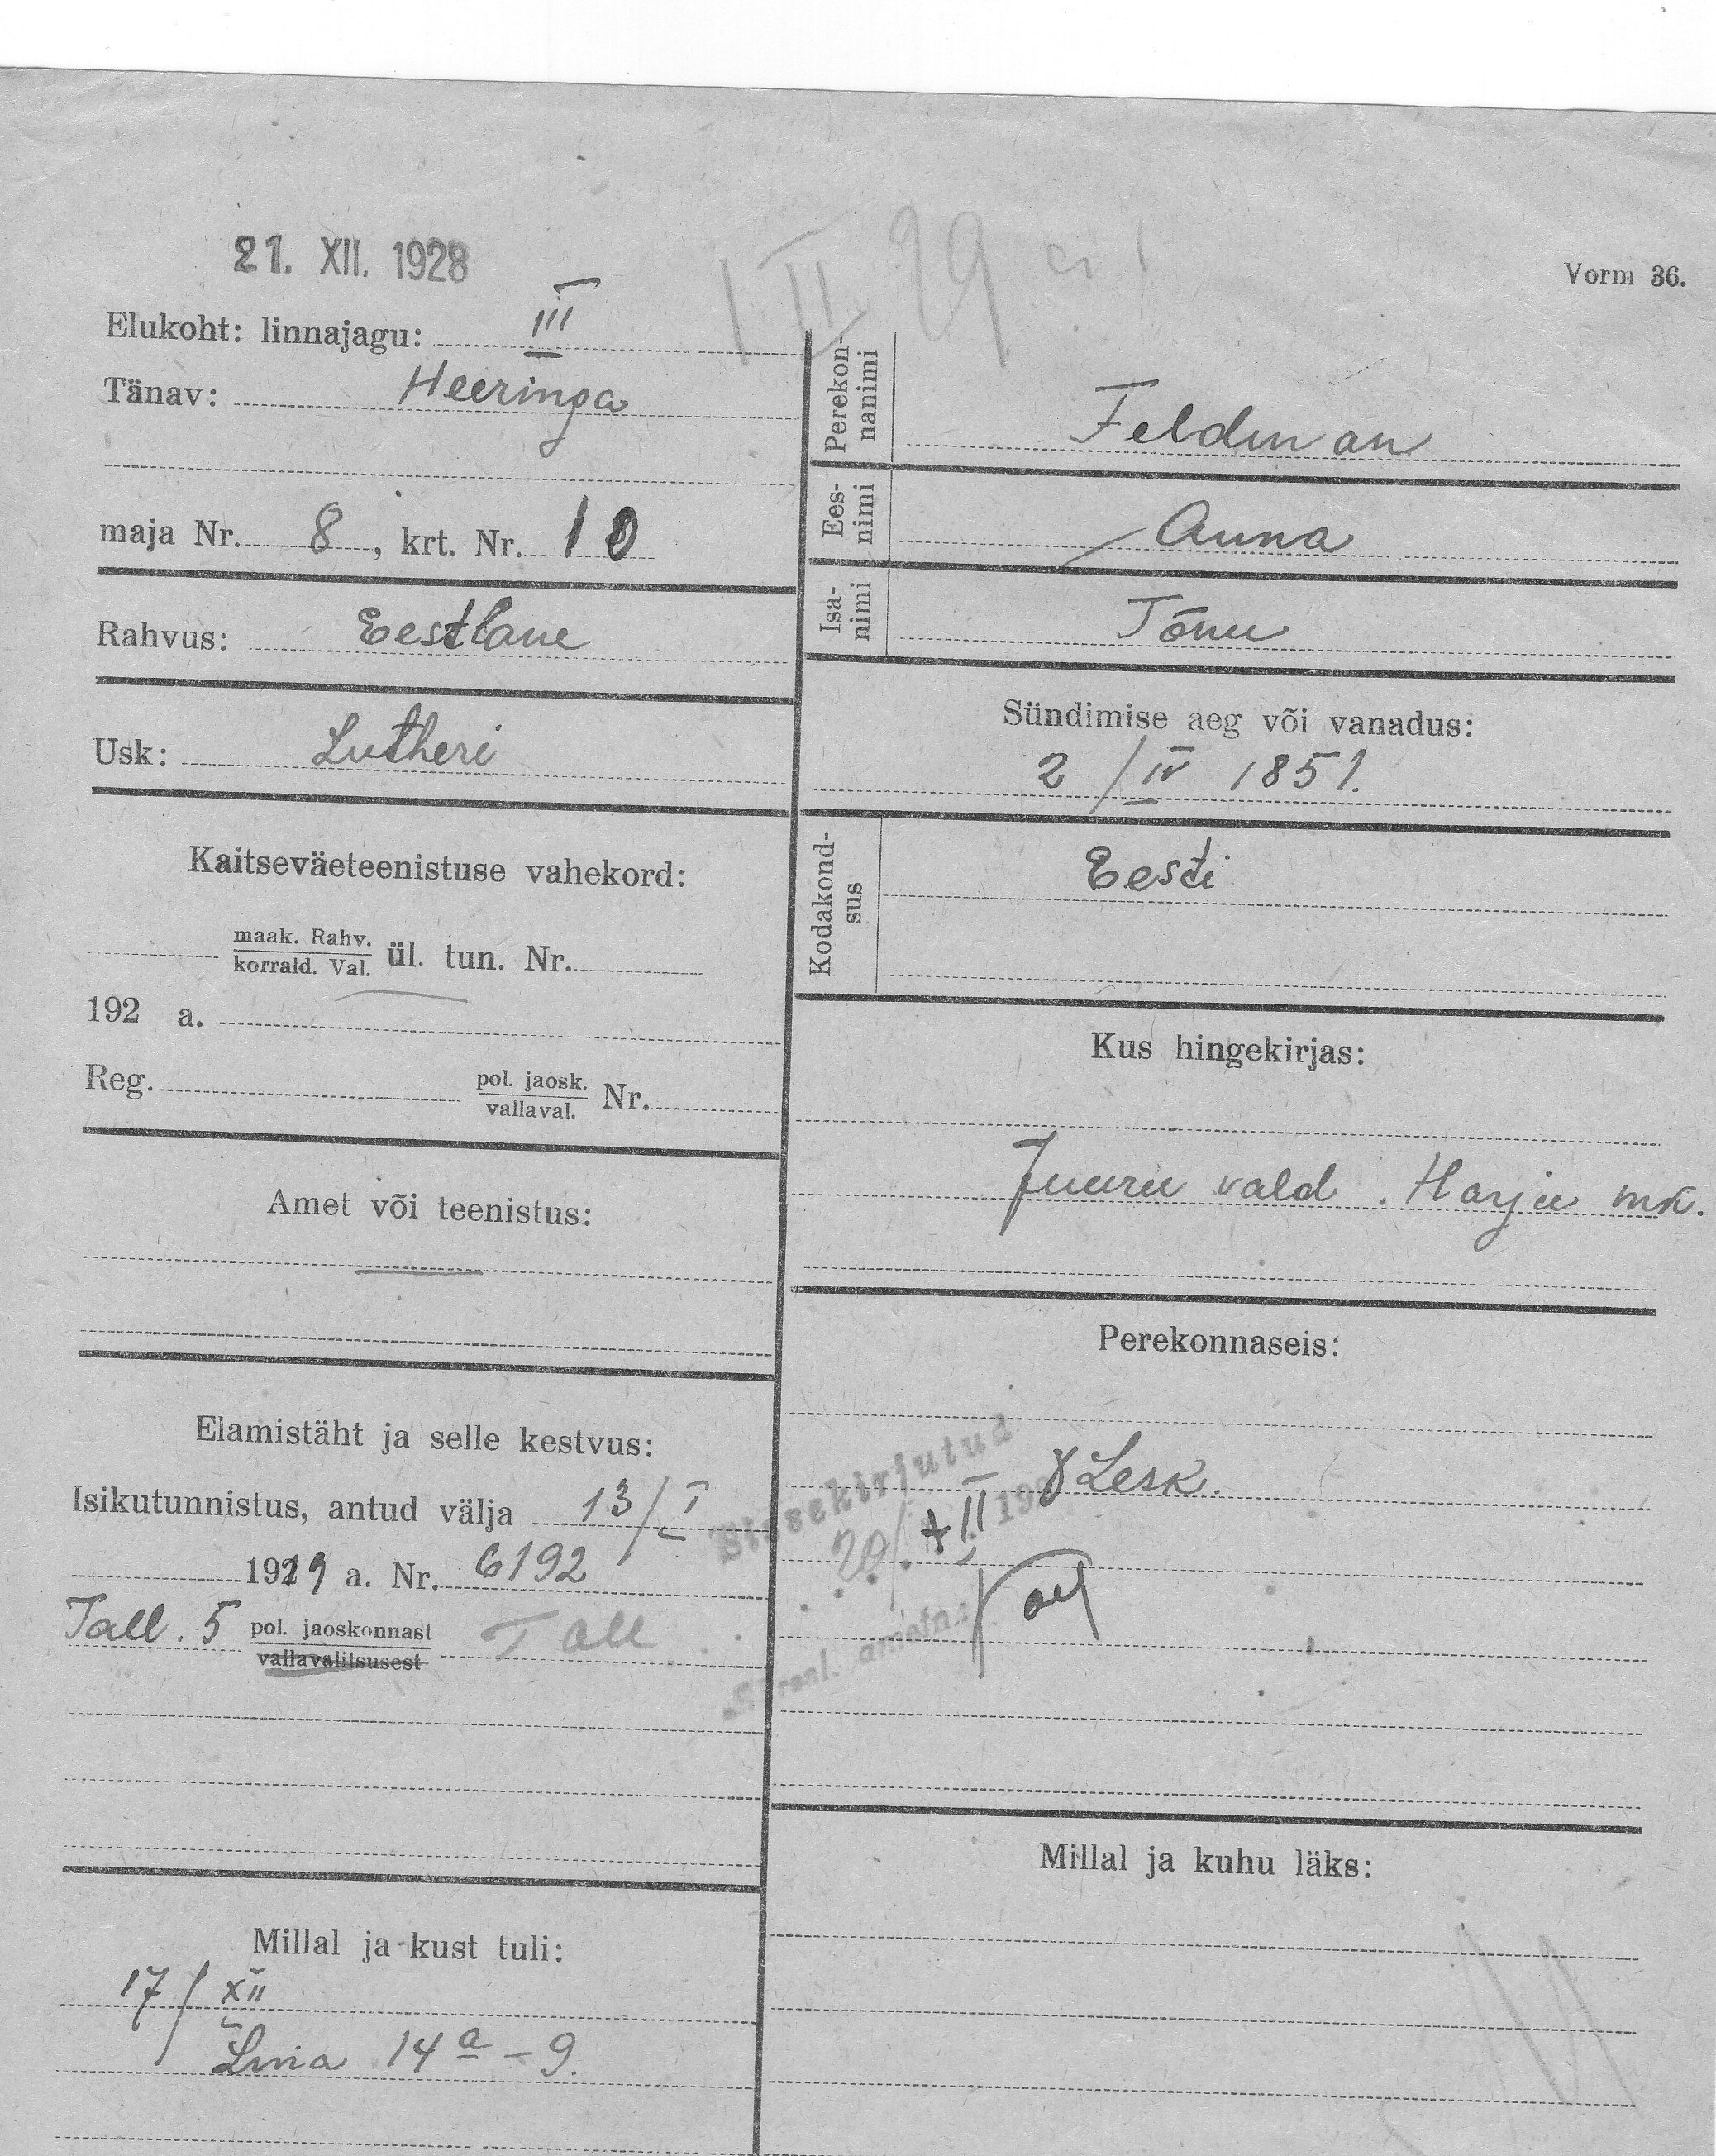 21. XII. 1928
Vorm 36.
Elukoht: linnajagu: III
Tänav: Heeringa
maja Nr. 8, krt. Nr. 10
Rahvus: Eestlane
Usk: Lutheri
Kaitseväeteenistuse vahekord:
maak. Rahv.
korrald. Val. ül. tun. Nr.
192 a.
Reg. pol. jaosk.
vallaval. Nr.
Amet või teenistus:
Elamistäht ja selle kestvus:
Isikutunnistus, antud välja 13/I
1919 a. Nr. 6192
Tall. 5 pol. jaoskonnast Tall
vallavalitsusest
Millal ja kust tuli:
17/XII
Liiva 14a – 9.
Perekon-
nanimi
Feldman
Ees-
nimi
Anna
Isa-
nimi
Tõnu
Sündimise aeg või vanadus:
2/IV 1851.
Kodakond-
sus
Eesti
Kus hingekirjas:
Juuru vald. Harju mk.
Perekonnaseis:
Lesk.
Sissekirjutud
20/XII 19
ametn.:
Millal ja kuhu läks: